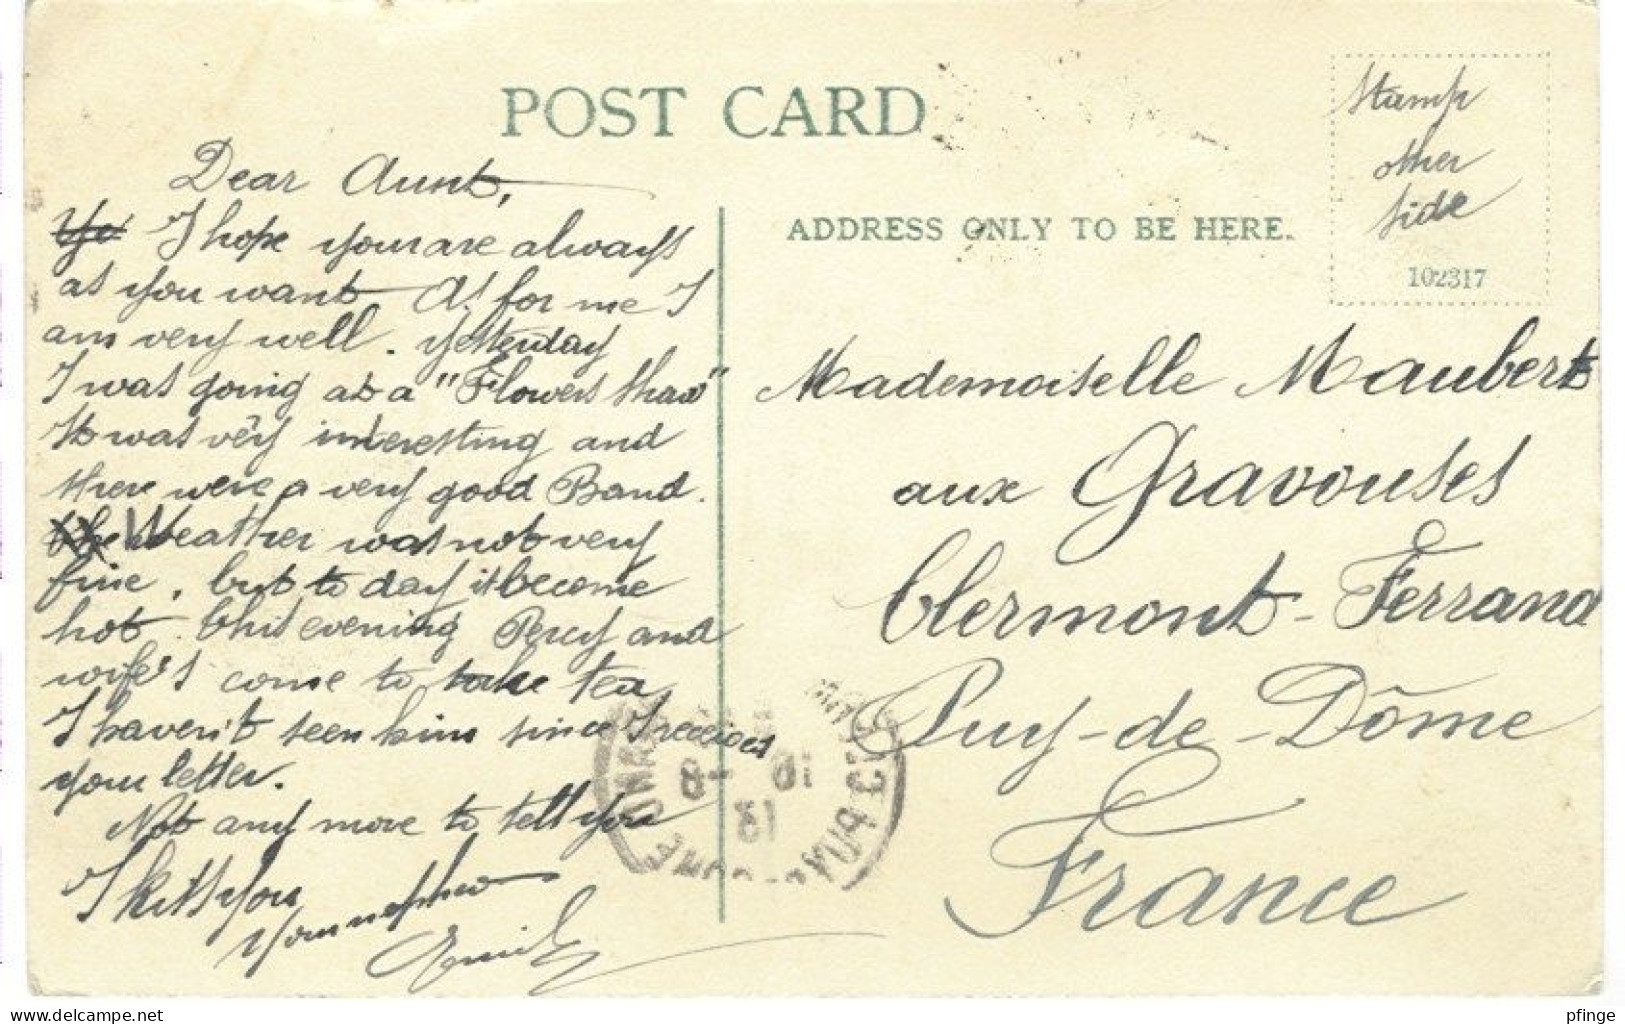 POST CARD
Dear Aunt,
I hope you are always
as you want. As for me I
am very well. yesterday
I was going at a "Flowers Show"
It was very interesting and
there were a very good Band.
Weather was not very
fine, but to day it become
hot. This evening Percy and
wife's come to take tea,
I haven't seen him since I received
your letter.
Not any more to tell you
I kiss you
Your nephew
Emile
Stamp
other
side
ADDRESS ONLY TO BE HERE.
102317
Mademoiselle Maubert
aux Gravouses
Clermont-Ferrand
Puy-de-Dôme
France
delcampe.net
pfinge